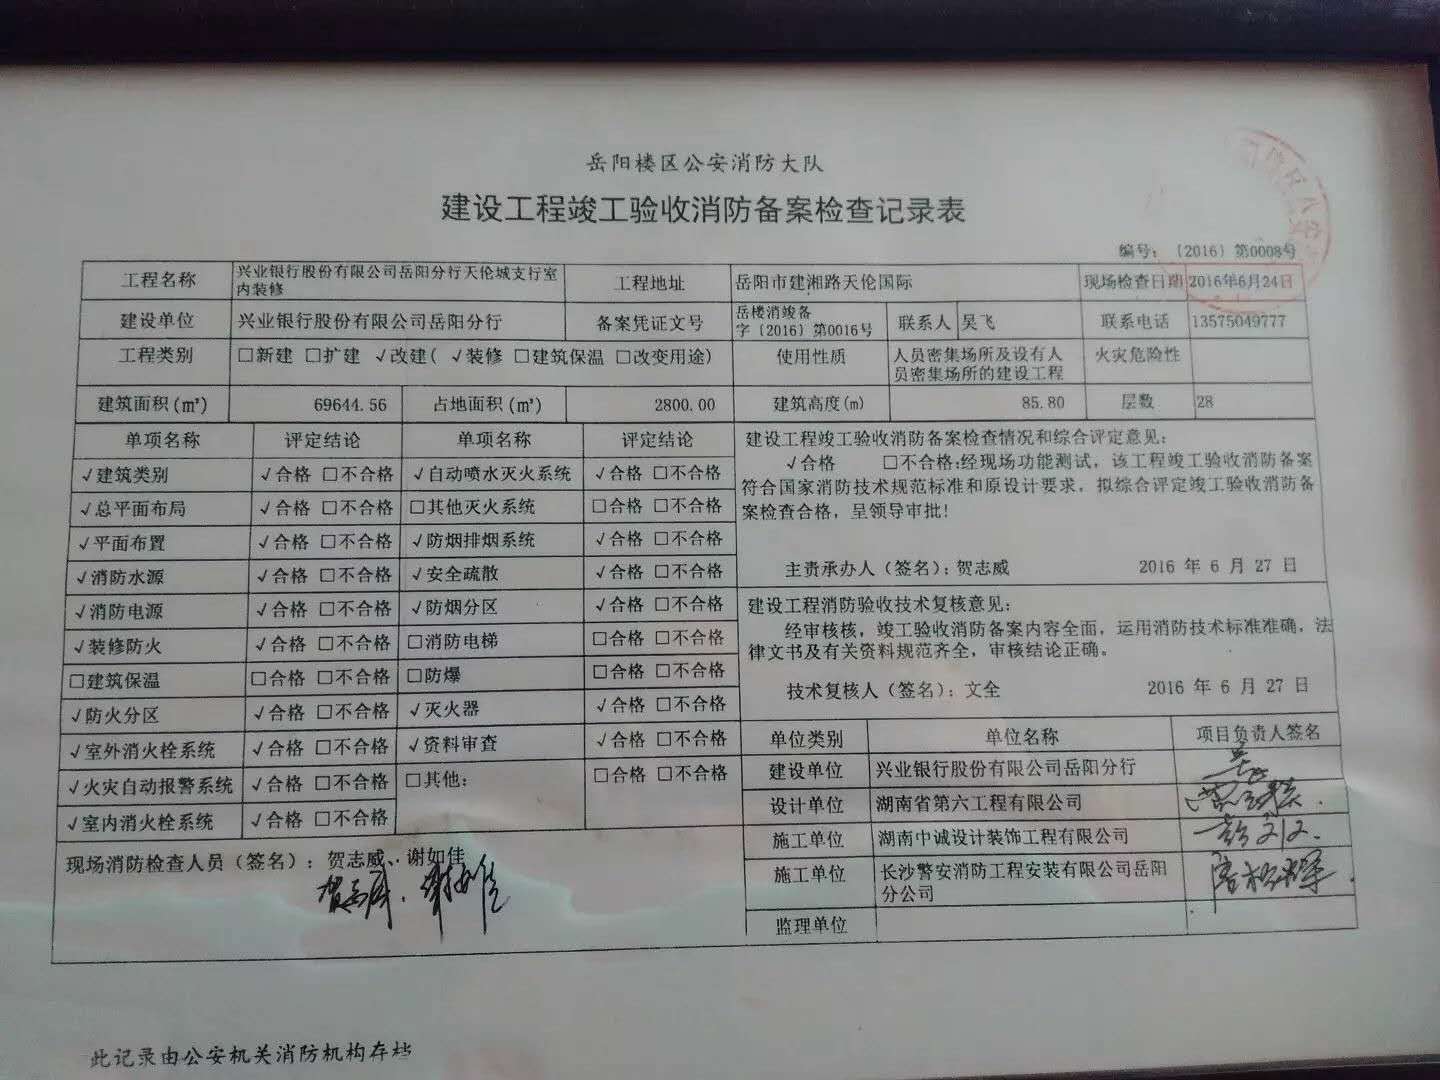 岳阳楼区公安消防大队
建设工程竣工验收消防备案检查记录表
编号：〔2016〕第0008号
工程名称 兴业银行股份有限公司岳阳分行天伦城支行室内装修 工程地址 岳阳市建湘路天伦国际 现场检查日期 2016年6月24日
建设单位 兴业银行股份有限公司岳阳分行 备案凭证文号 岳楼消竣备字〔2016〕第0016号 联系人 吴飞 联系电话 13575049777
工程类别 □新建 □扩建 √改建( √装修 □建筑保温 □改变用途) 使用性质 人员密集场所及设有人员密集场所的建设工程 火灾危险性
建筑面积(㎡) 69644.56 占地面积(㎡) 2800.00 建筑高度(m) 85.80 层数 28
单项名称 评定结论 单项名称 评定结论
√建筑类别 √合格 □不合格 √自动喷水灭火系统 √合格 □不合格
√总平面布局 √合格 □不合格 □其他灭火系统 □合格 □不合格
√平面布置 √合格 □不合格 √防烟排烟系统 √合格 □不合格
√消防水源 √合格 □不合格 √安全疏散 √合格 □不合格
√消防电源 √合格 □不合格 √防烟分区 √合格 □不合格
√装修防火 √合格 □不合格 □消防电梯 □合格 □不合格
□建筑保温 □合格 □不合格 □防爆 □合格 □不合格
√防火分区 √合格 □不合格 √灭火器 √合格 □不合格
√室外消火栓系统 √合格 □不合格 √资料审查 √合格 □不合格
√火灾自动报警系统 √合格 □不合格 □其他： □合格 □不合格
√室内消火栓系统 √合格 □不合格
现场消防检查人员（签名）：贺志威、谢如佳
贺志威. 谢如佳
建设工程竣工验收消防备案检查情况和综合评定意见：
√合格 □不合格:经现场功能测试，该工程竣工验收消防备案
符合国家消防技术规范标准和原设计要求，拟综合评定竣工验收消防备
案检查合格，呈领导审批!
主责承办人（签名）：贺志威 2016 年 6 月 27 日
建设工程消防验收技术复核意见：
经审核核，竣工验收消防备案内容全面，运用消防技术标准准确，法
律文书及有关资料规范齐全，审核结论正确。
技术复核人（签名）：文全 2016 年 6 月 27 日
单位类别 单位名称 项目负责人签名
建设单位 兴业银行股份有限公司岳阳分行
设计单位 湖南省第六工程有限公司
施工单位 湖南中诚设计装饰工程有限公司
施工单位 长沙警安消防工程安装有限公司岳阳
分公司
监理单位
此记录由公安机关消防机构存档